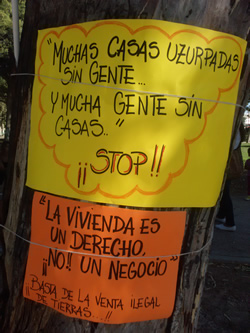 "MUCHAS CASAS UZURPADAS
SIN GENTE...
Y MUCHA GENTE SIN
CASAS.."
¡¡STOP!!
"LA VIVIENDA ES
UN DERECHO,
¡NO!! UN NEGOCIO"
BASTA DE LA VENTA ILEGAL
DE TIERRAS...!!